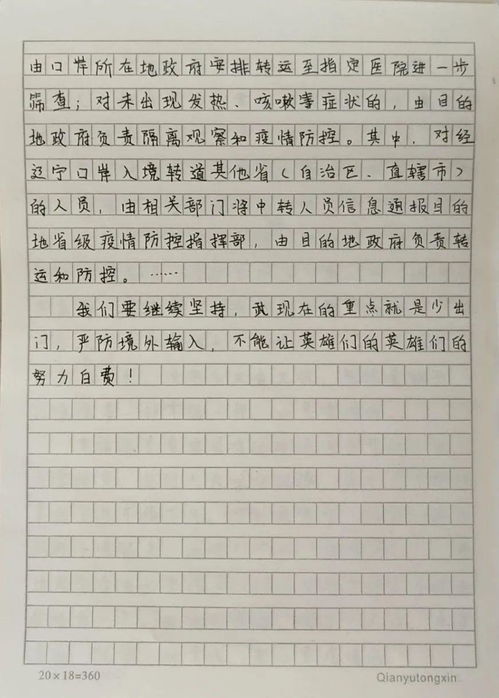 由口岸所在地政府安排转运至指定医院进一步
筛查；对未出现发热、咳嗽等症状的，由目的
地政府负责隔离观察和疫情防控。其中，对经
辽宁口岸入境转道其他省（自治区、直辖市）
的人员，由相关部门将中转人员信息通报目的
地省级疫情防控指挥部，由目的地政府负责转
运和防控。……
我们要继续坚持，武现在的重点就是少出
门，严防境外输入，不能让英雄们的英雄们的
努力白费！
20×18=360
Qianyutongxin